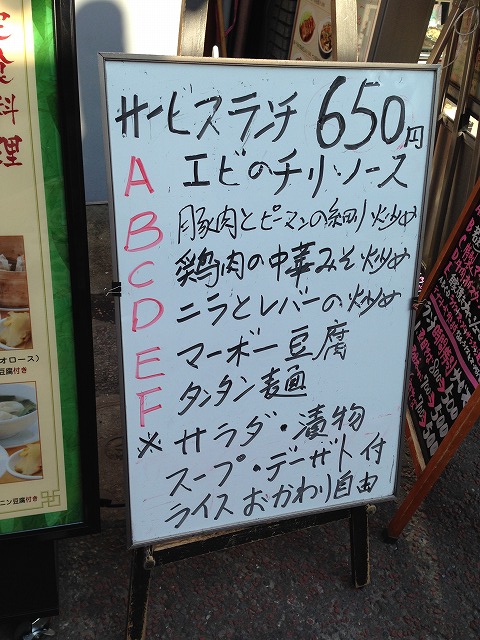 サービスランチ 650円
A エビのチリソース
B 豚肉とピーマンの細切炒め
C 鶏肉の中華みそ炒め
D ニラとレバーの炒め
E マーボー豆腐
F タンタン麺
※ サラダ・漬物
スープ・デーザト付
ライスおかわり自由
食
料
理
オロース)
豆腐付き
ニン豆腐付き